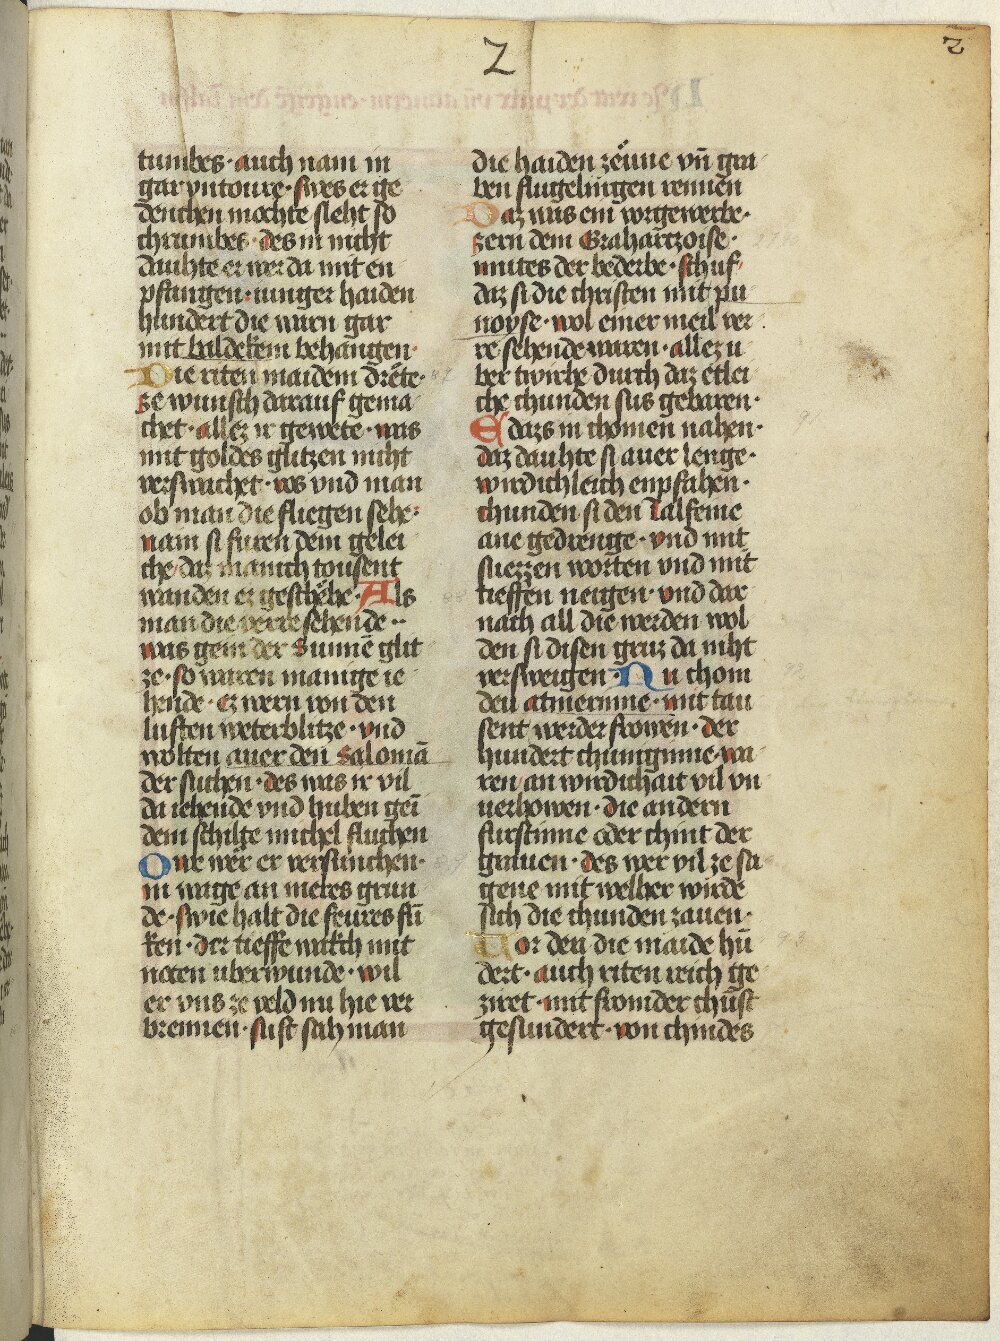 2
2
tumbes · auch nam in
gar vntoure · swes er ge
denchen mochte sleht so
chrumbes · des in nicht
dauhte er wer da mit en
pfangen · iunger haiden
hundert die warn gar
mit baldekein behangen ·
Die riten maidem drete ·
ze wunsch darauf gema
chet · allez ir gewete · was
mit goldes glitzen niht
verswachet · ros vnd man
ob man die fliegen sehe ·
nam si furen dem gelei
che daz manich tousent
wanden ez geschehe · Als
man die verre sehende ··
was gein der Sunnē glit
ze · so waren manige ie
hende · ez wern von den
luften weterblitze · vnd
wolten auer den Salomā
der suchen · des was ir vil
da iehende vnd huben geī
dem schilte michel fluchen
Owe wer er versunchen ·
in wage an meres grun
de · swie halt die feures fū
ken · der tieffe wilch mit
noten uberwunde · wil
er vns ze veld nu hie ver
brennen · sust sah man
die haiden zeune vn̄ gra
ben flugelingen rennen
Daz was ein vorgewerbe ·
zern dem Grahartzoise ·
mutes der bederbe · schuf
daz si die christen mit pu
noyse · wol einer meil ver
re sehende waren · allez u
ber twirhe durch daz etlei
che chunden sus gebaren ·
E dazs in chomen nahen ·
daz dauhte si auer lenge ·
wirdichleich enpfahen ·
chunden si den Talfeine
ane gedrenge · vnd mit
suezzen worten vnd mit
tieffen neigen · vnd dar
nach all die werden wol
den si disen gruz da niht
versweigen · Nu chom
den atmerinne · mit tau
sent werder frowen · der
hundert chuniginne · wa
ren an wirdichait vil vn
uerhowen · die andern
furstinne oder chint der
grauen · des wer vil ze sa
gene mit welher wirde
sich die chunden zauen ·
Vor den die maide hū
dert · auch riten reich ge
ziret · mit fromder chūst
gesundert · von chindes